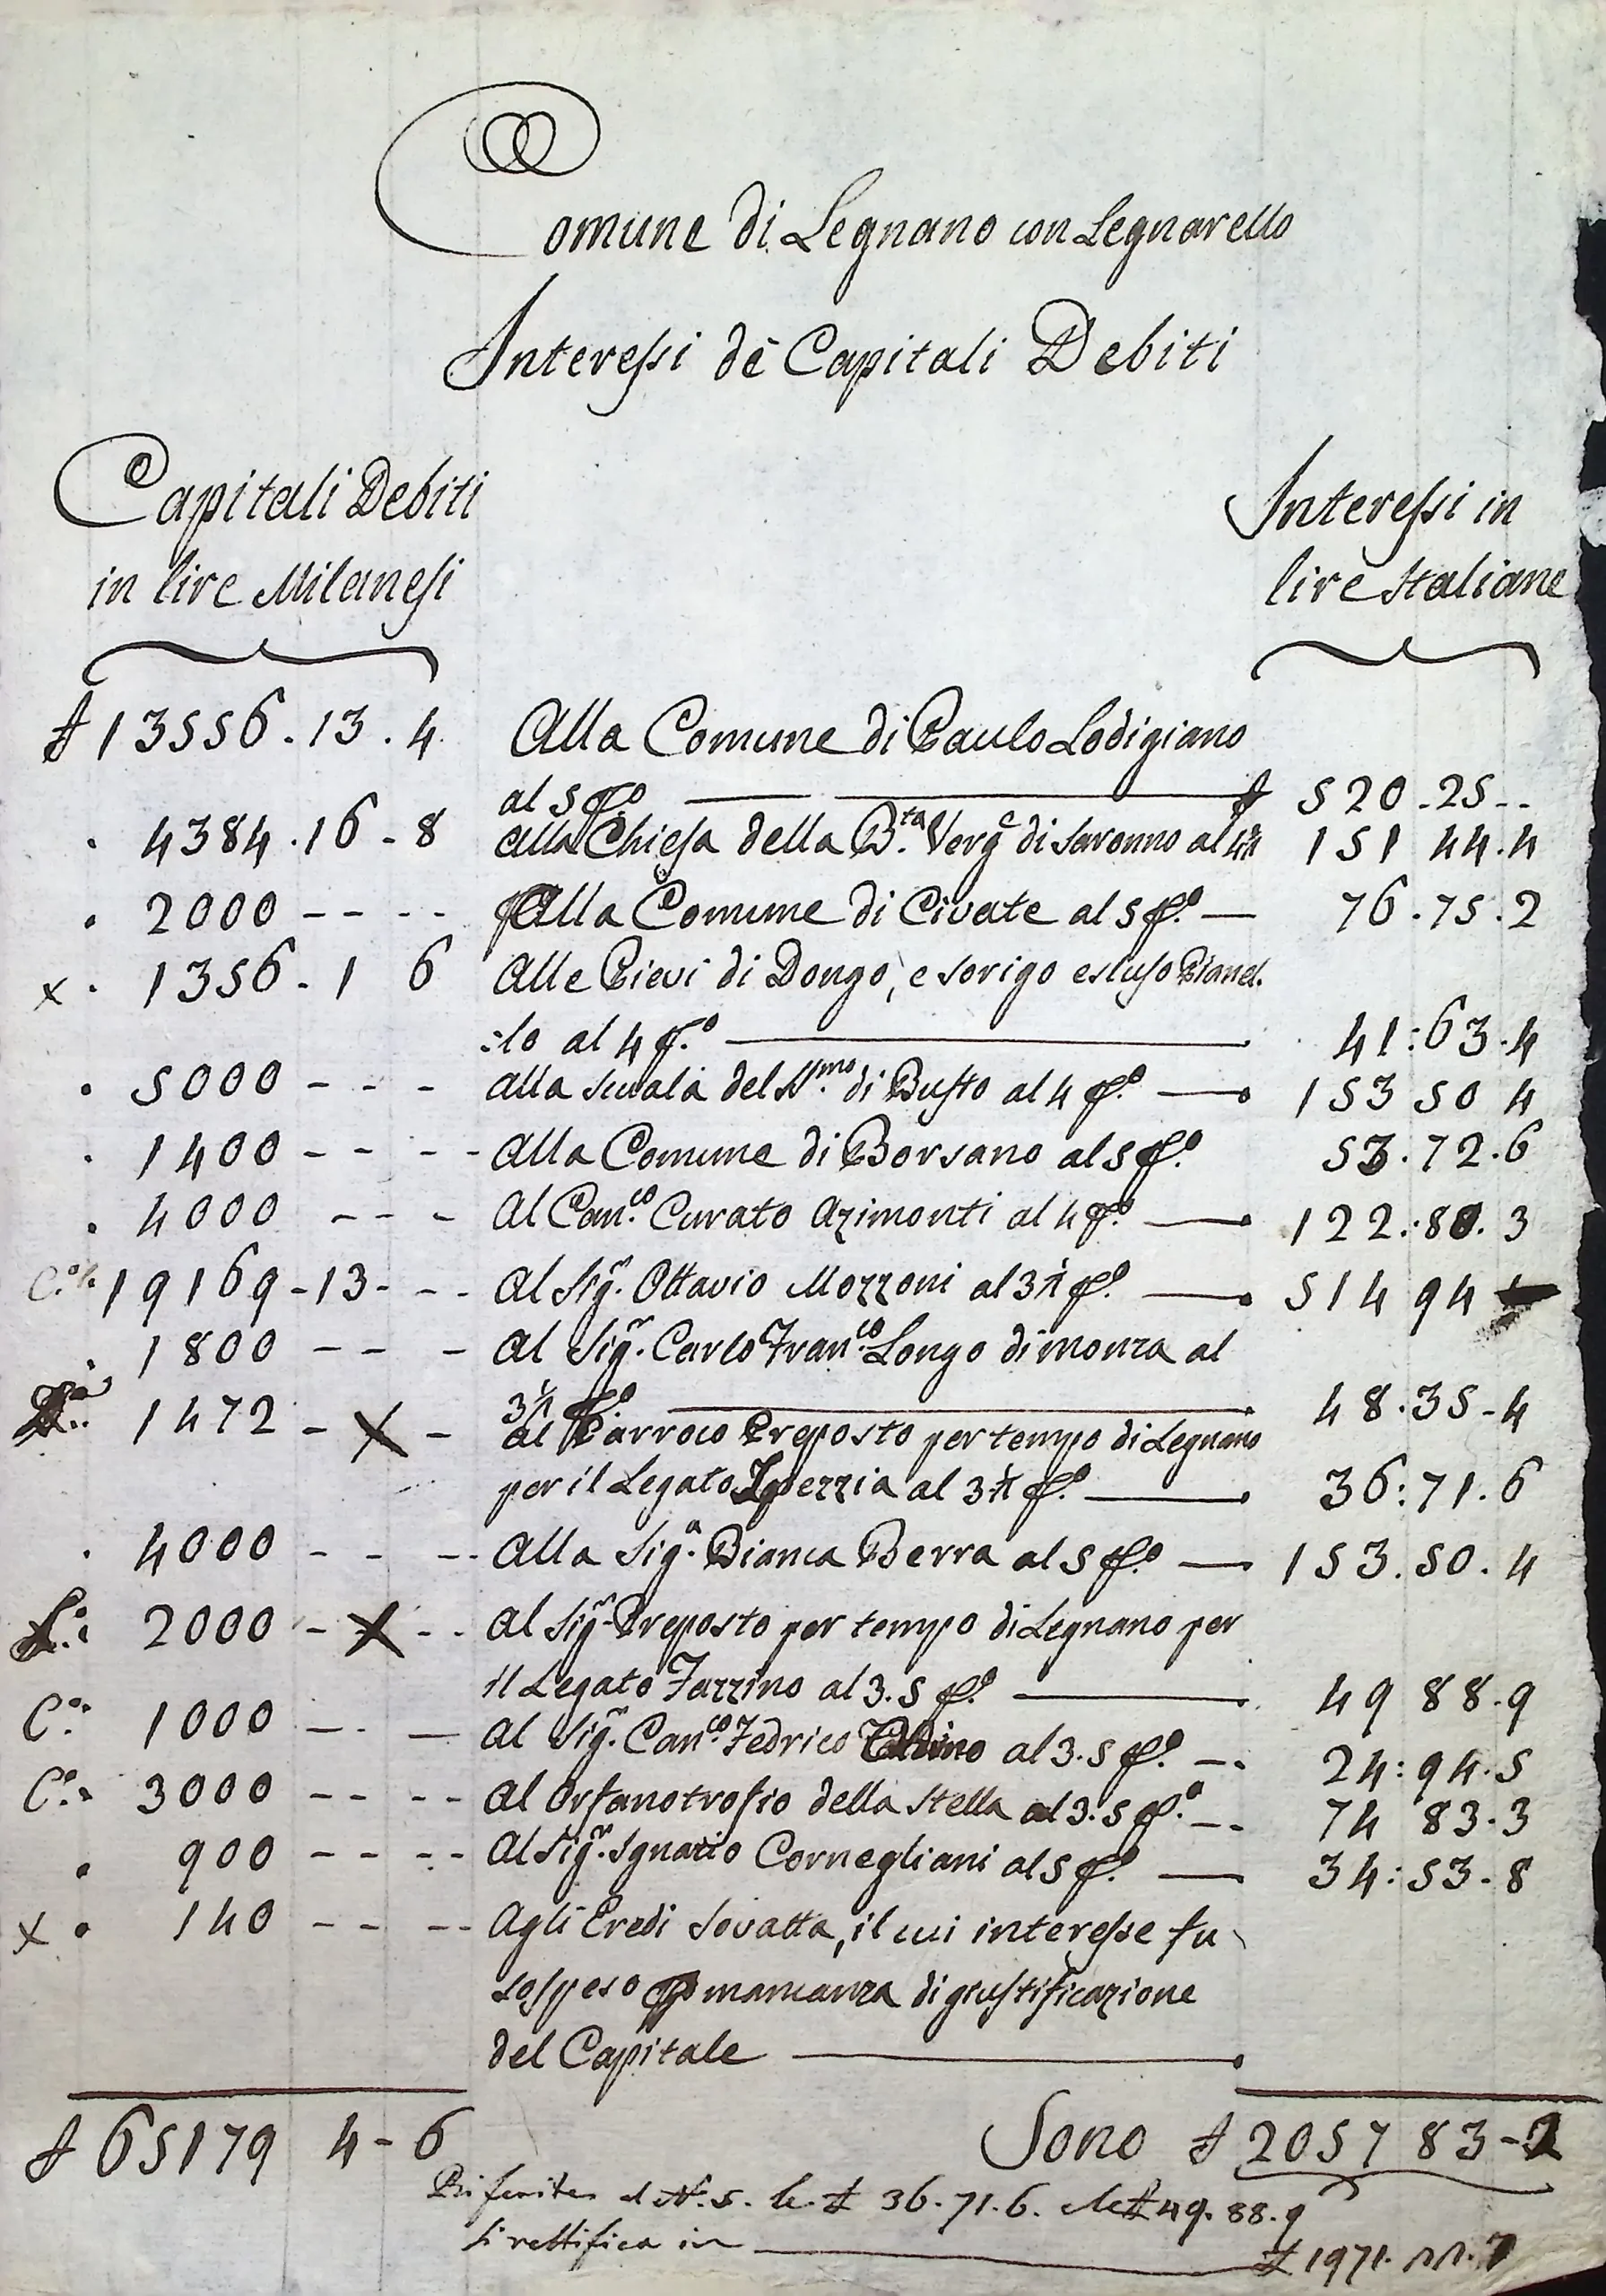 Comune di Legnano con Legnarello
Interessi de Capitali Debiti
Capitali Debiti
in lire Milanesi
Interessi in
lire Italiane
£ 13556.13.4 Alla Comune di Paulo Lodigiano
al 5 p.o £ 520.25
4384.16-8 alla Chiesa della B.ta Verg.e di Saronno al 4½ 151 44.4
2000 Alla Comune di Civate al 5 p.o 76.75.2
x 1356.1 6 Alle Pievi di Dongo, e Sorigo escluso Pianel-
:lo al 4 p.o 41:63.4
5000 alla Scuola del SS.mo di Busto al 4 p.o 153 50 4
1400 Alla Comune di Borsano al 5 p.o 53.72.6
4000 Al Can.co Curato Azimonti al 4 p.o 122:80.3
19169-13 Al Sig.r Ottavio Mozzoni al 3½ p.o 514 94
1800 Al Sig.r Carlo Fran.co Longo di Monza al
3½ p.o 48.35-4
1472 - X - al Parroco Preposto per tempo di Legnano
per il Legato Spezzia al 3¼ p.o 36:71.6
4000 Alla Sig.a Bianca Berra al 5 p.o 153.50.4
2000 - X - Al Sig.r Preposto per tempo di Legnano per
il Legato Fazzino al 3.5 p.o 49 88.9
C.o 1000 Al Sig.r Can.co Fedrico al 3.5 p.o 24:94.5
C.o 3000 Al Orfanotrofio della Stella al 3.5 p.o 74 83.3
900 Al Sig.r Ignazio Cornegliani al 5 p.o 34:53.8
x 140 Agli Eredi Sovatta, il cui interesse fu
sospeso p mancanza di giustificazione
del Capitale
£ 65179 4-6 Sono £ 2057 83-2
al N. 5. le £ 36.71.6. e le £ 49.88.9
si rettifica in £ 1971.